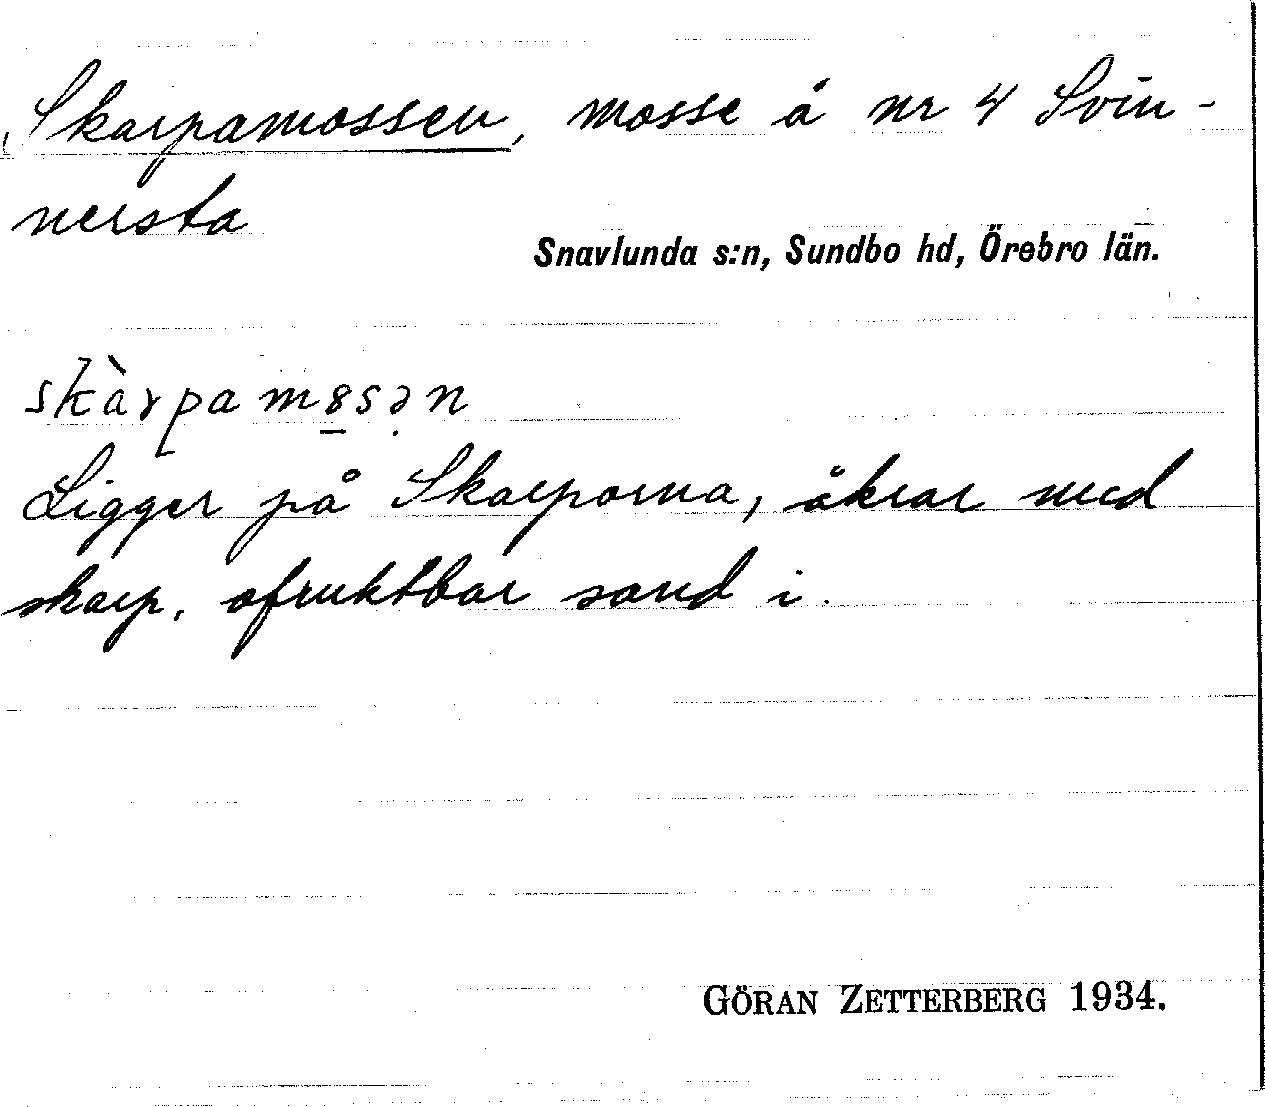 Skarpamossen, mosse å nr 4 Svin-
nersta
Snavlunda s:n, Sundbo hd, Örebro län.
skàrpam8sən
Ligger på Skarporna, åkrar med
skarp, ofruktbar sand i.
GÖRAN ZETTERBERG 1934.